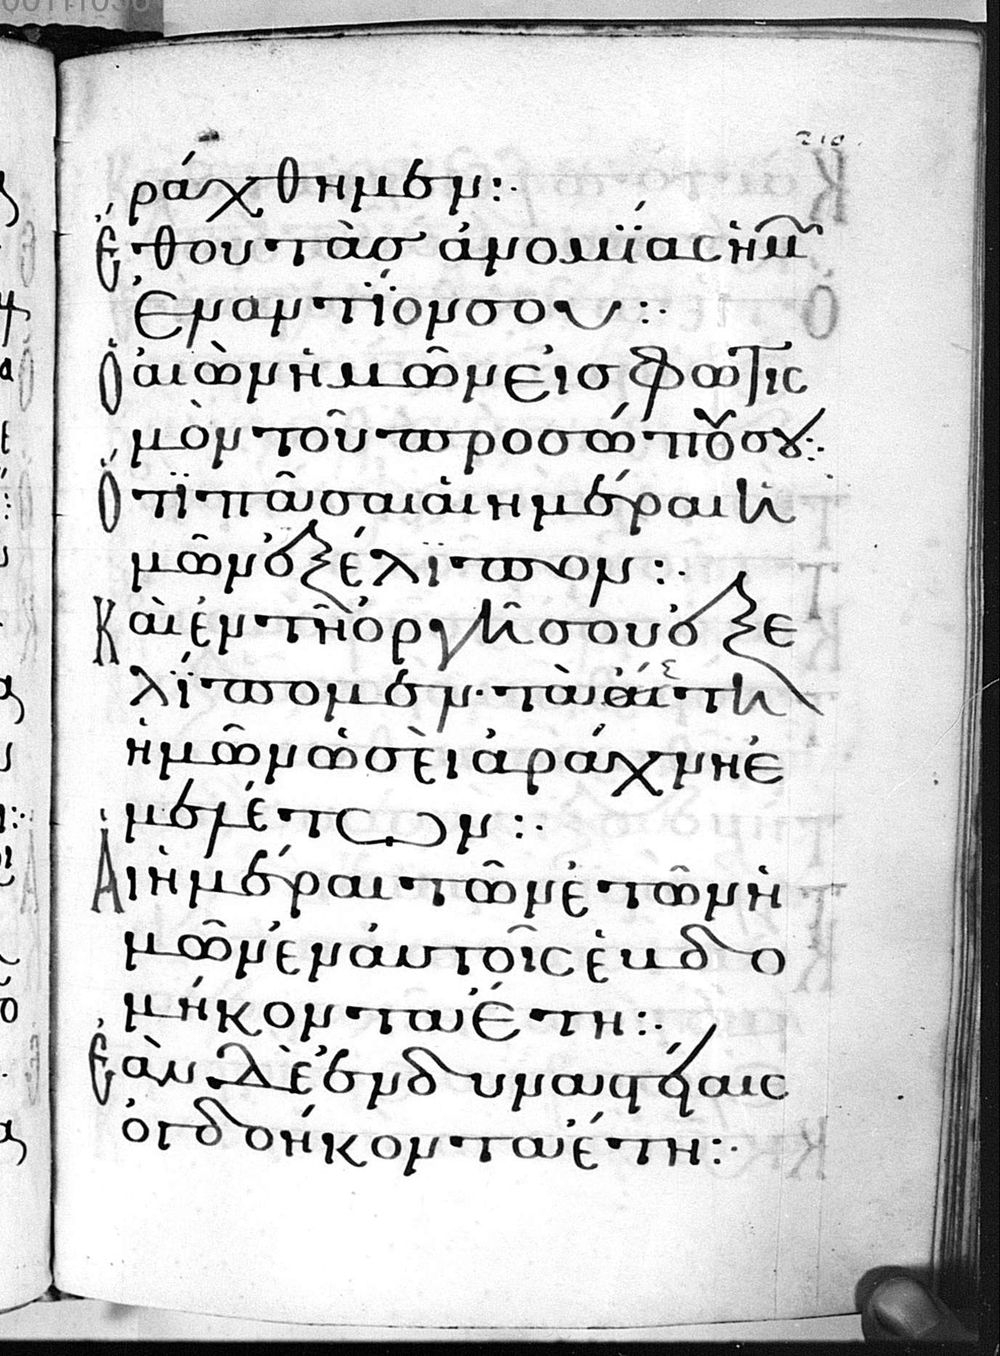 ράχθημεν:·
Ἔθου τὰσ ἀνομίας ἡμ
ἐναντίον σου:·
Ὁ αἰὼν ἡμῶν εἰσ φωτις
μὸν τοῦ προσώπου σου:·
Ὅτι πᾶσαι αἱ ἡμέραι ἡ
μῶν ἐξέλιπον:·
Καὶ ἐν τῆ ὀργῆ σου ἐξε
λίπομεν· τὰ ἔτη
ἡμῶν ὡσεὶ ἀράχνη ἐ
μελέτων:·
Αἱ ἡμέραι τῶν ἐτῶν ἡ
μῶν ἐν αὐτοῖς ἑβδο
μήκοντα ἔτη:·
Ἐὰν δὲ ἐν δυναστείαις
ὀγδοήκοντα ἔτη:·